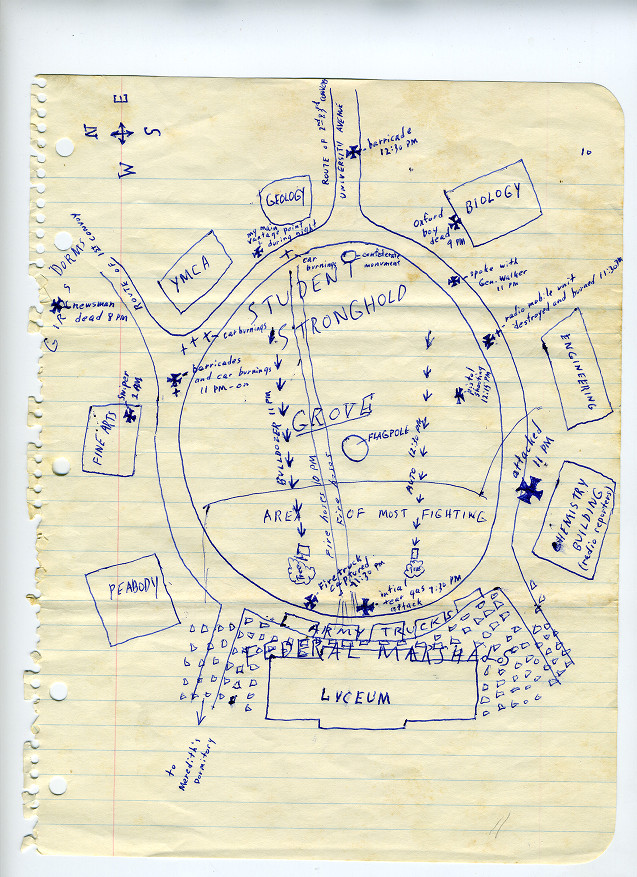 E
N
S
W
10
ROUTE OF 2nd & 3rd CONVOYS
UNIVERSITY AVENUE
barricade
12:30 PM
GEOLOGY
BIOLOGY
Oxford
boy
dead
9 PM
my main
vantage point
during night
car
burnings
confederate
monument
spoke with
Gen. Walker
11 PM
radio mobile unit
destroyed and burned 11:30 PM
GIRLS DORMS
ROUTE OF 1ST CONVOY
newsman
dead 8 PM
YMCA
STUDENT
STRONGHOLD
car burnings
barricades
and car burnings
11 PM-on
Sniper
2 AM
FINE ARTS
ENGINEERING
pistol
12:15 PM
GROVE
FLAGPOLE
BULLDOZER 11 PM
AUTO 12:30 PM
attacked
11 PM
CHEMISTRY
BUILDING
(radio reporters)
AREA OF MOST FIGHTING
Fire hoses 10 PM
Fire hoses
PEABODY
Tree
Fire truck
captured
11:30 PM
initial
tear gas 7:30 PM
attack
ARMY TRUCKS
FEDERAL MARSHALS
LYCEUM
to
Meredith's
Dormitory